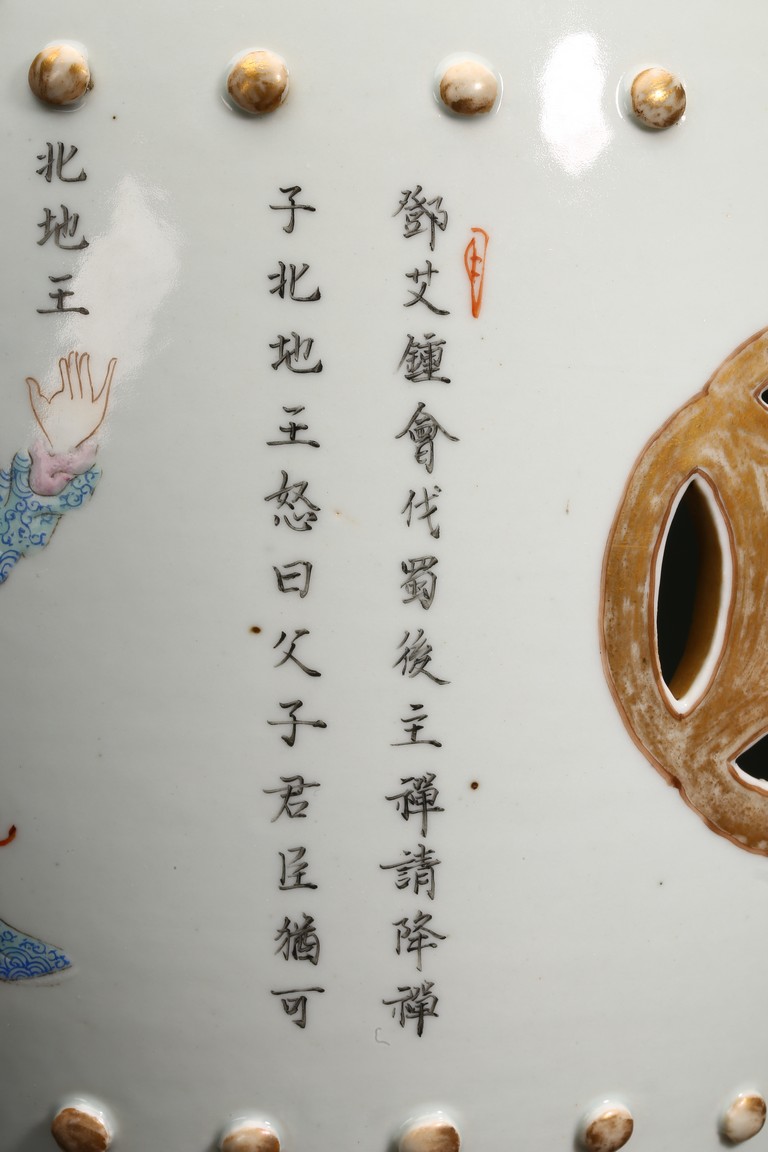 鄧艾鍾會伐蜀後主禪請降禪
子北地王怒曰父子君臣猶可
北地王